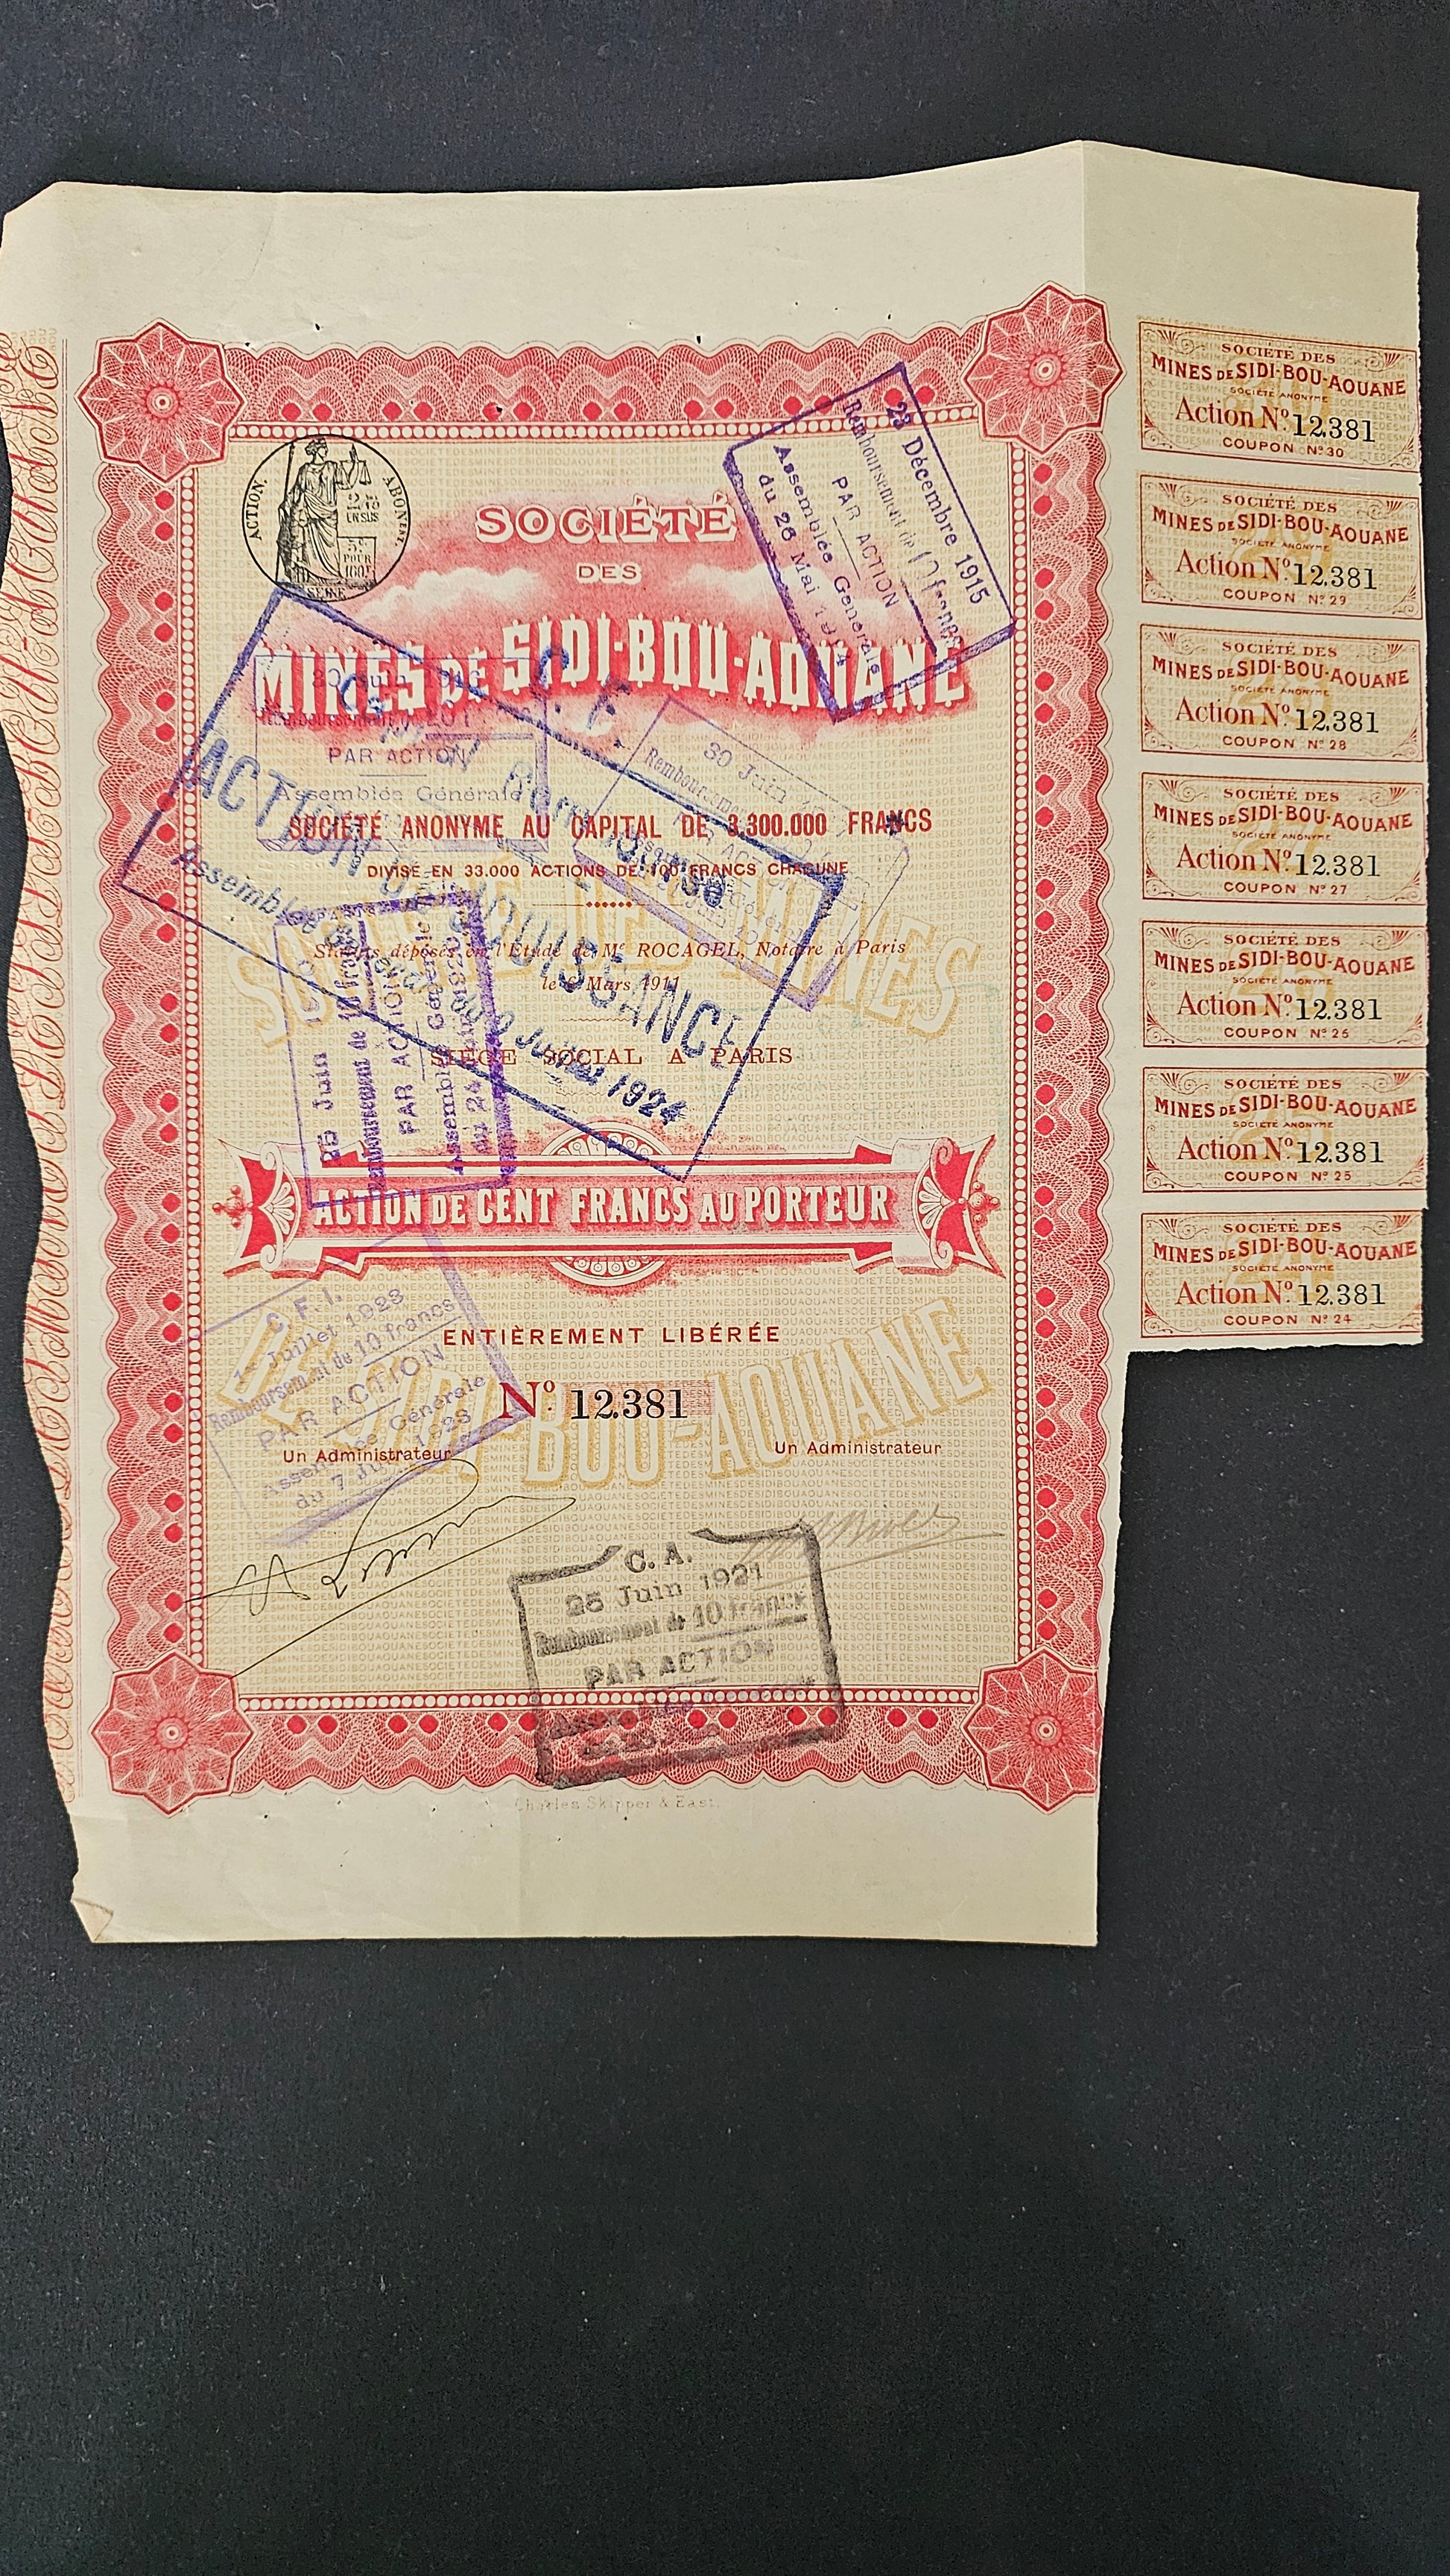 ACTION.
ABONnt
SEINE
SOCIÉTÉ
DES
MINES DE SIDI-BOU-AOUANE
SOCIÉTÉ ANONYME AU CAPITAL DE 3.300.000 FRANCS
DIVISÉ EN 33.000 ACTIONS DE 100 FRANCS CHACUNE
Statuts déposés en l'Étude de Me ROCAGEL, Notaire à Paris
le Mars 1911
SIÈGE SOCIAL A PARIS
ACTION DE CENT FRANCS AU PORTEUR
ENTIÈREMENT LIBÉRÉE
No. 12.381
Un Administrateur
Un Administrateur
Charles Skipper & East.
23 Décembre 1915
Remboursement de 10 francs
PAR ACTION
Assemblée Générale
du 26 Mai
30 Juin
Remboursement de
PAR ACTION
Assemblée Générale
30 Juin
C. F.
ACTION DE JOUISSANCE
Assemblée
Juillet 1924
25 Juin
Remboursement de 10 francs
PAR ACTION
Assemblée Générale
du 24
C. F. I.
1er Juillet 1923
Remboursement de 10 francs
PAR ACTION
Assemblée Générale
du 7 1923
C. A.
25 Juin 1921
Remboursement de 10 francs
PAR ACTION
SOCIÉTÉ DES
MINES DE SIDI-BOU-AOUANE
SOCIÉTÉ ANONYME
Action No. 12.381
COUPON No 30
SOCIÉTÉ DES
MINES DE SIDI-BOU-AOUANE
SOCIÉTÉ ANONYME
Action No. 12.381
COUPON No 29
SOCIÉTÉ DES
MINES DE SIDI-BOU-AOUANE
SOCIÉTÉ ANONYME
Action No. 12.381
COUPON No 28
SOCIÉTÉ DES
MINES DE SIDI-BOU-AOUANE
SOCIÉTÉ ANONYME
Action No. 12.381
COUPON No 27
SOCIÉTÉ DES
MINES DE SIDI-BOU-AOUANE
SOCIÉTÉ ANONYME
Action No. 12.381
COUPON No 26
SOCIÉTÉ DES
MINES DE SIDI-BOU-AOUANE
SOCIÉTÉ ANONYME
Action No. 12.381
COUPON No 25
SOCIÉTÉ DES
MINES DE SIDI-BOU-AOUANE
SOCIÉTÉ ANONYME
Action No. 12.381
COUPON No 24